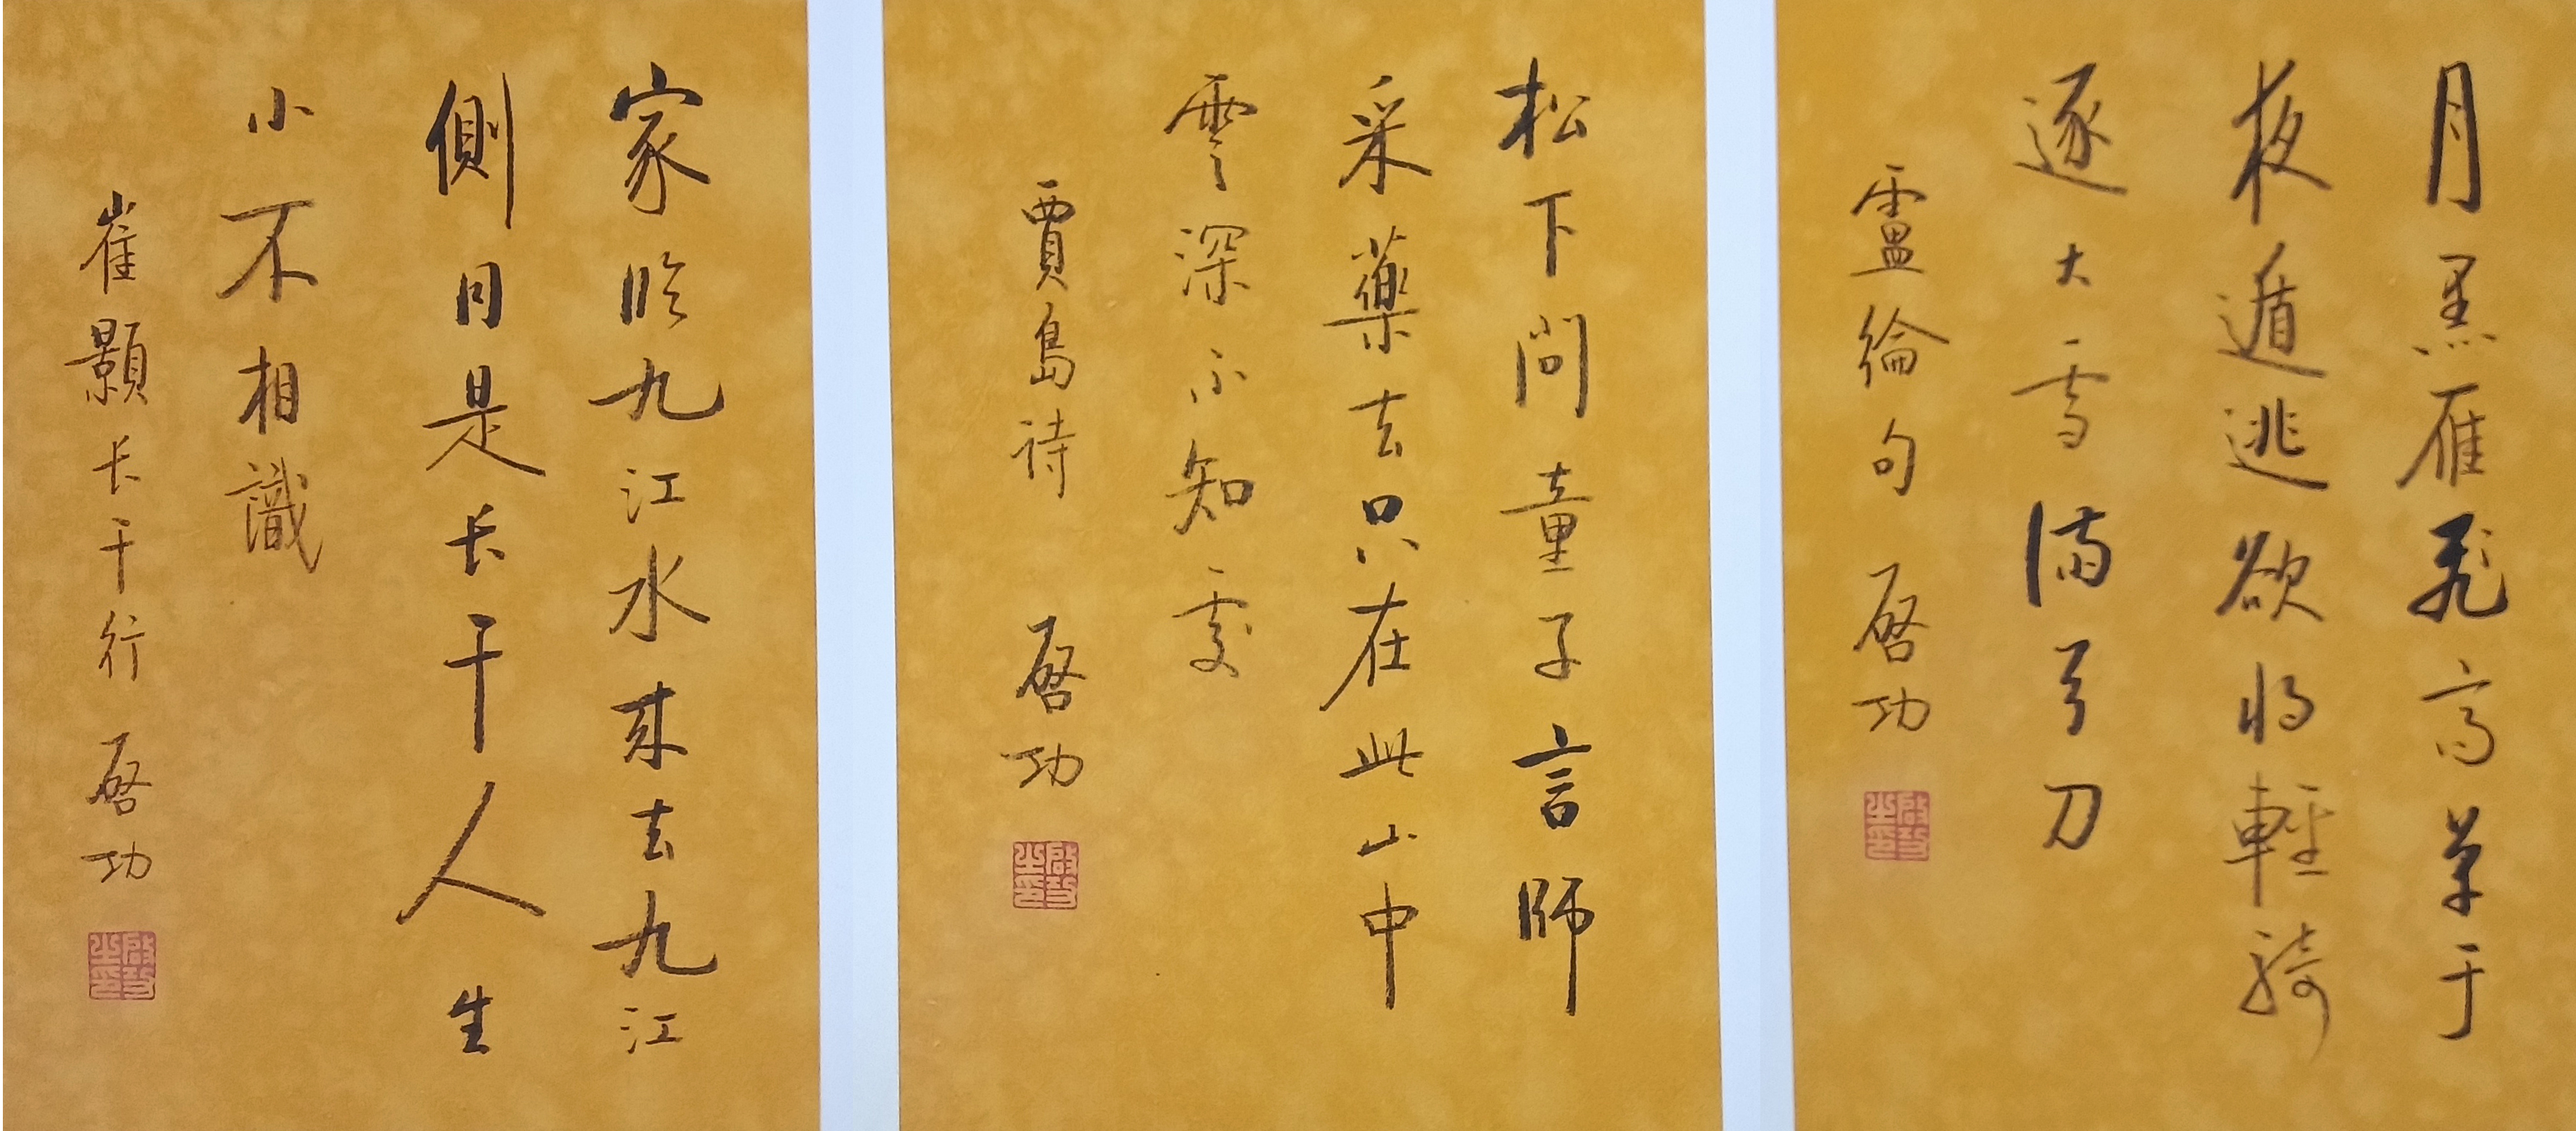 月黑雁飛高單于
夜遁逃欲將輕騎
逐大雪滿弓刀
盧綸句 啓功
啓功之印
松下問童子言師
采藥去只在此山中
雲深不知處
賈島詩 啓功
啓功之印
家臨九江水来去九江
側同是长干人生
小不相識
崔顥长干行 啓功
啓功之印